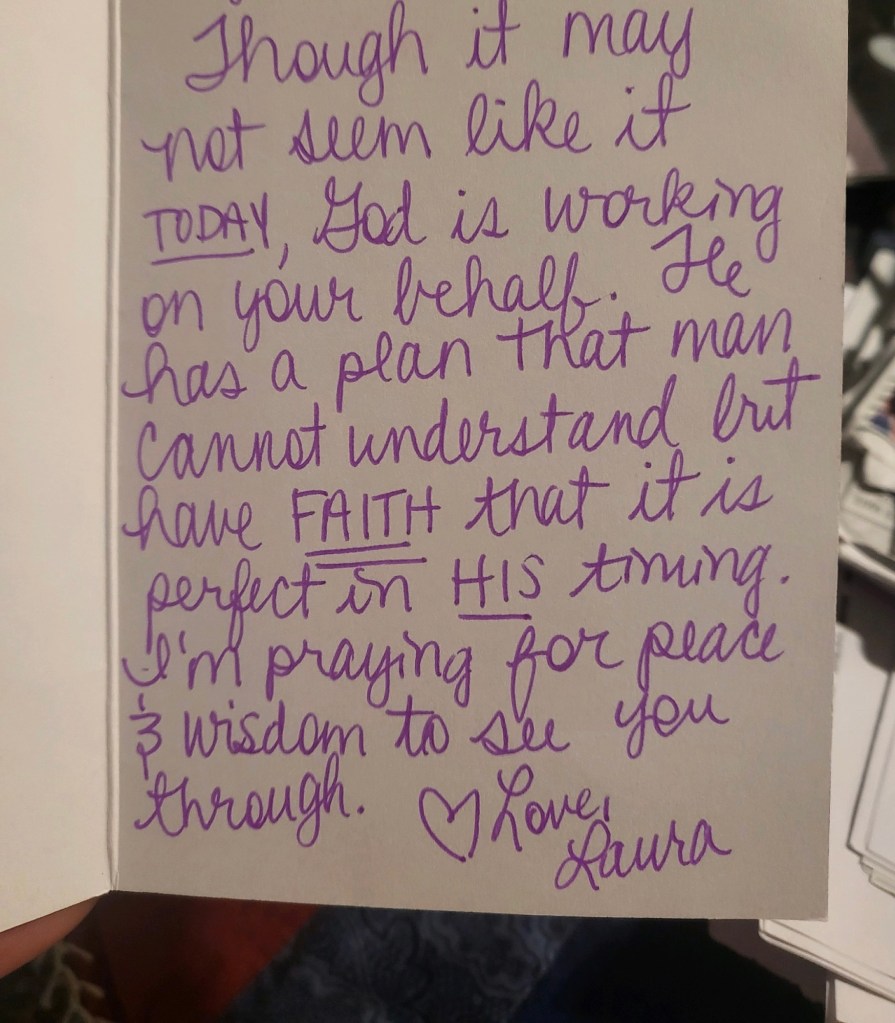 Though it may
not seem like it
TODAY, God is working
on your behalf. He
has a plan that man
cannot understand but
have FAITH that it is
perfect in HIS timing.
I'm praying for peace
& wisdom to see you
through. ♡ Love,
Laura